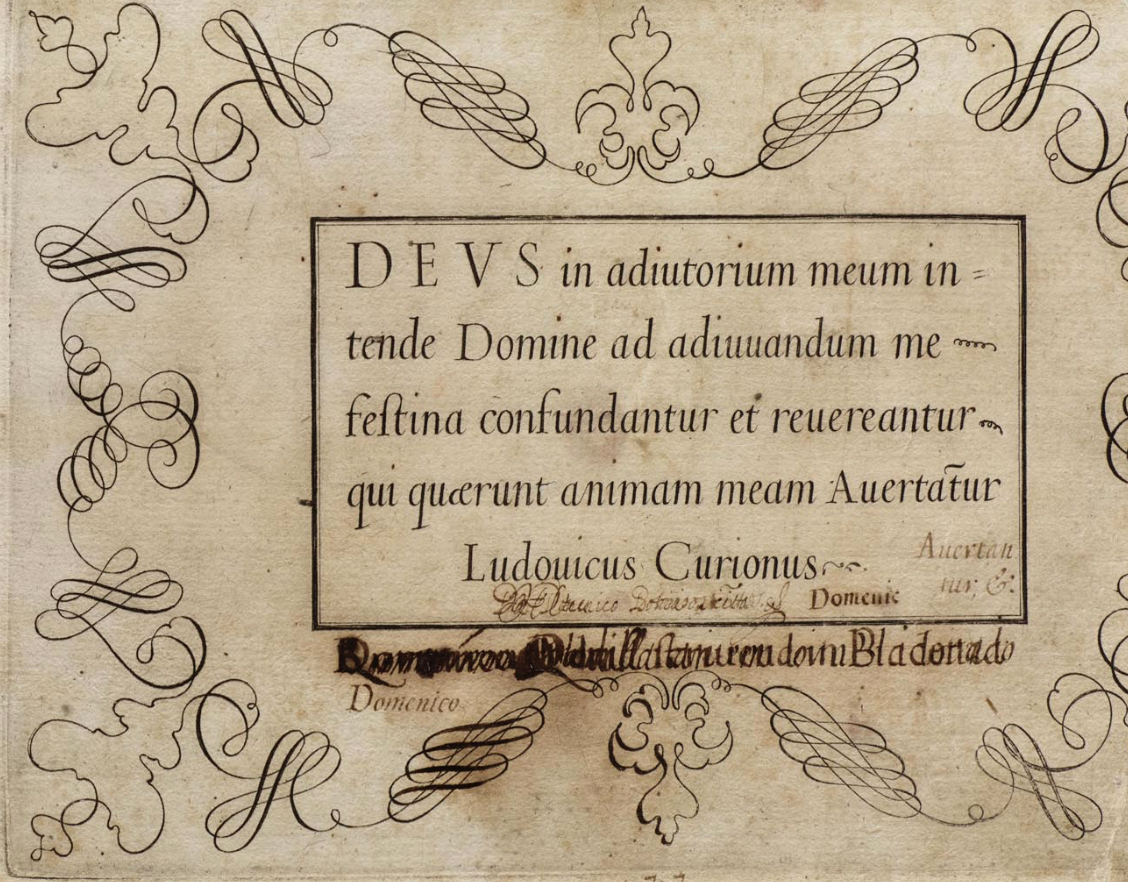 DEVS in adiutorium meum in=
tende Domine ad adiuuandum me
festina confundantur et reuereantur
qui quærunt animam meam Auertat̃ur
Ludouicus Curionus
Auertan
tur, &.
Domenic
Domenico